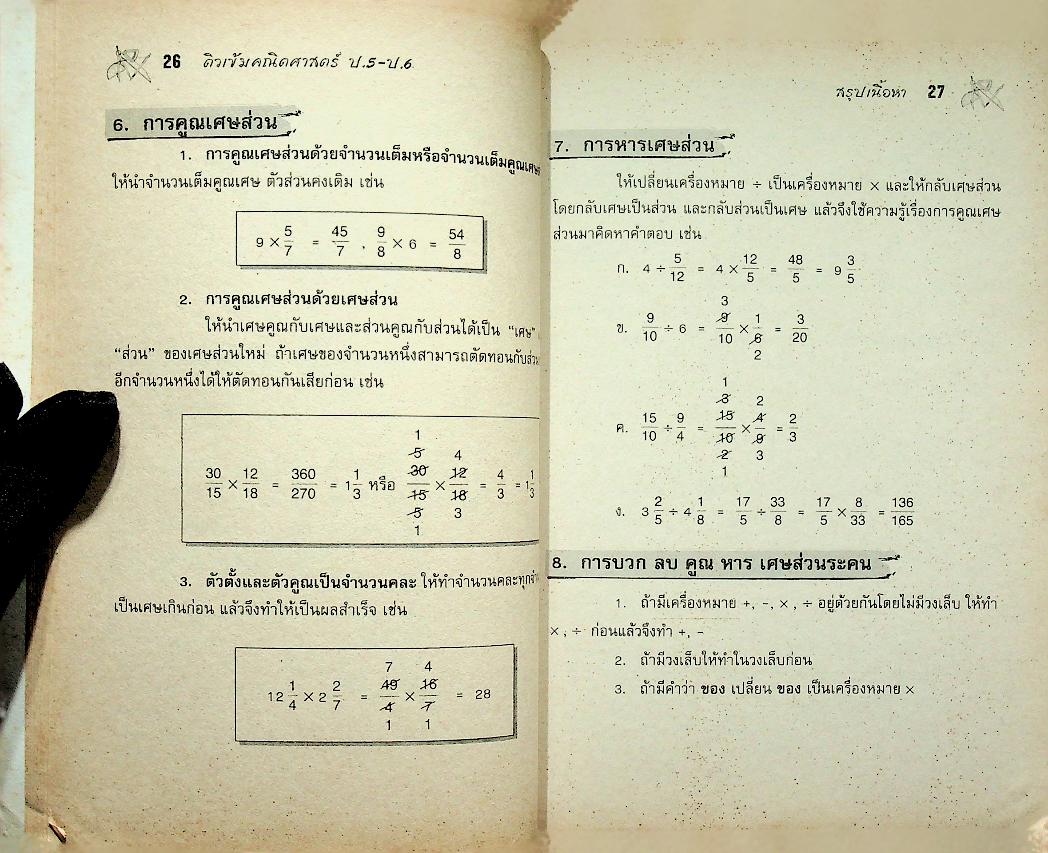 26 ติวเข้มคณิตศาสตร์ ป.5-ป.6
6. การคูณเศษส่วน
1. การคูณเศษส่วนด้วยจำนวนเต็มหรือจำนวนเต็มคูณเศษ
ให้นำจำนวนเต็มคูณเศษ ตัวส่วนคงเดิม เช่น
9 × 5/7 = 45/7 , 9/8 × 6 = 54/8
2. การคูณเศษส่วนด้วยเศษส่วน
ให้นำเศษคูณกับเศษและส่วนคูณกับส่วนได้เป็น “เศษ”
“ส่วน” ของเศษส่วนใหม่ ถ้าเศษของจำนวนหนึ่งสามารถตัดทอนกับส่วน
อีกจำนวนหนึ่งได้ให้ตัดทอนกันเสียก่อน เช่น
1
5 4
30/15 × 12/18 = 360/270 = 1 1/3 หรือ 30/15 × 12/18 = 4/3 = 1 1/3
5 3
1
3. ตัวตั้งและตัวคูณเป็นจำนวนคละ ให้ทำจำนวนคละทุก
เป็นเศษเกินก่อน แล้วจึงทำให้เป็นผลสำเร็จ เช่น
7 4
12 1/4 × 2 2/7 = 49/4 × 16/7 = 28
1 1
สรุปเนื้อหา 27
7. การหารเศษส่วน
ให้เปลี่ยนเครื่องหมาย ÷ เป็นเครื่องหมาย × และให้กลับเศษส่วน
โดยกลับเศษเป็นส่วน และกลับส่วนเป็นเศษ แล้วจึงใช้ความรู้เรื่องการคูณเศษ
ส่วนมาคิดหาคำตอบ เช่น
ก. 4 ÷ 5/12 = 4 × 12/5 = 48/5 = 9 3/5
3
ข. 9/10 ÷ 6 = 9/10 × 1/6 = 3/20
2
1
3 2
ค. 15/10 ÷ 9/4 = 15/10 × 4/9 = 2/3
2 3
1
ง. 3 2/5 ÷ 4 1/8 = 17/5 ÷ 33/8 = 17/5 × 8/33 = 136/165
8. การบวก ลบ คูณ หาร เศษส่วนระคน
1. ถ้ามีเครื่องหมาย +, -, ×, ÷ อยู่ด้วยกันโดยไม่มีวงเล็บ ให้ทำ
×, ÷ ก่อนแล้วจึงทำ +, -
2. ถ้ามีวงเล็บให้ทำในวงเล็บก่อน
3. ถ้ามีคำว่า ของ เปลี่ยน ของ เป็นเครื่องหมาย ×